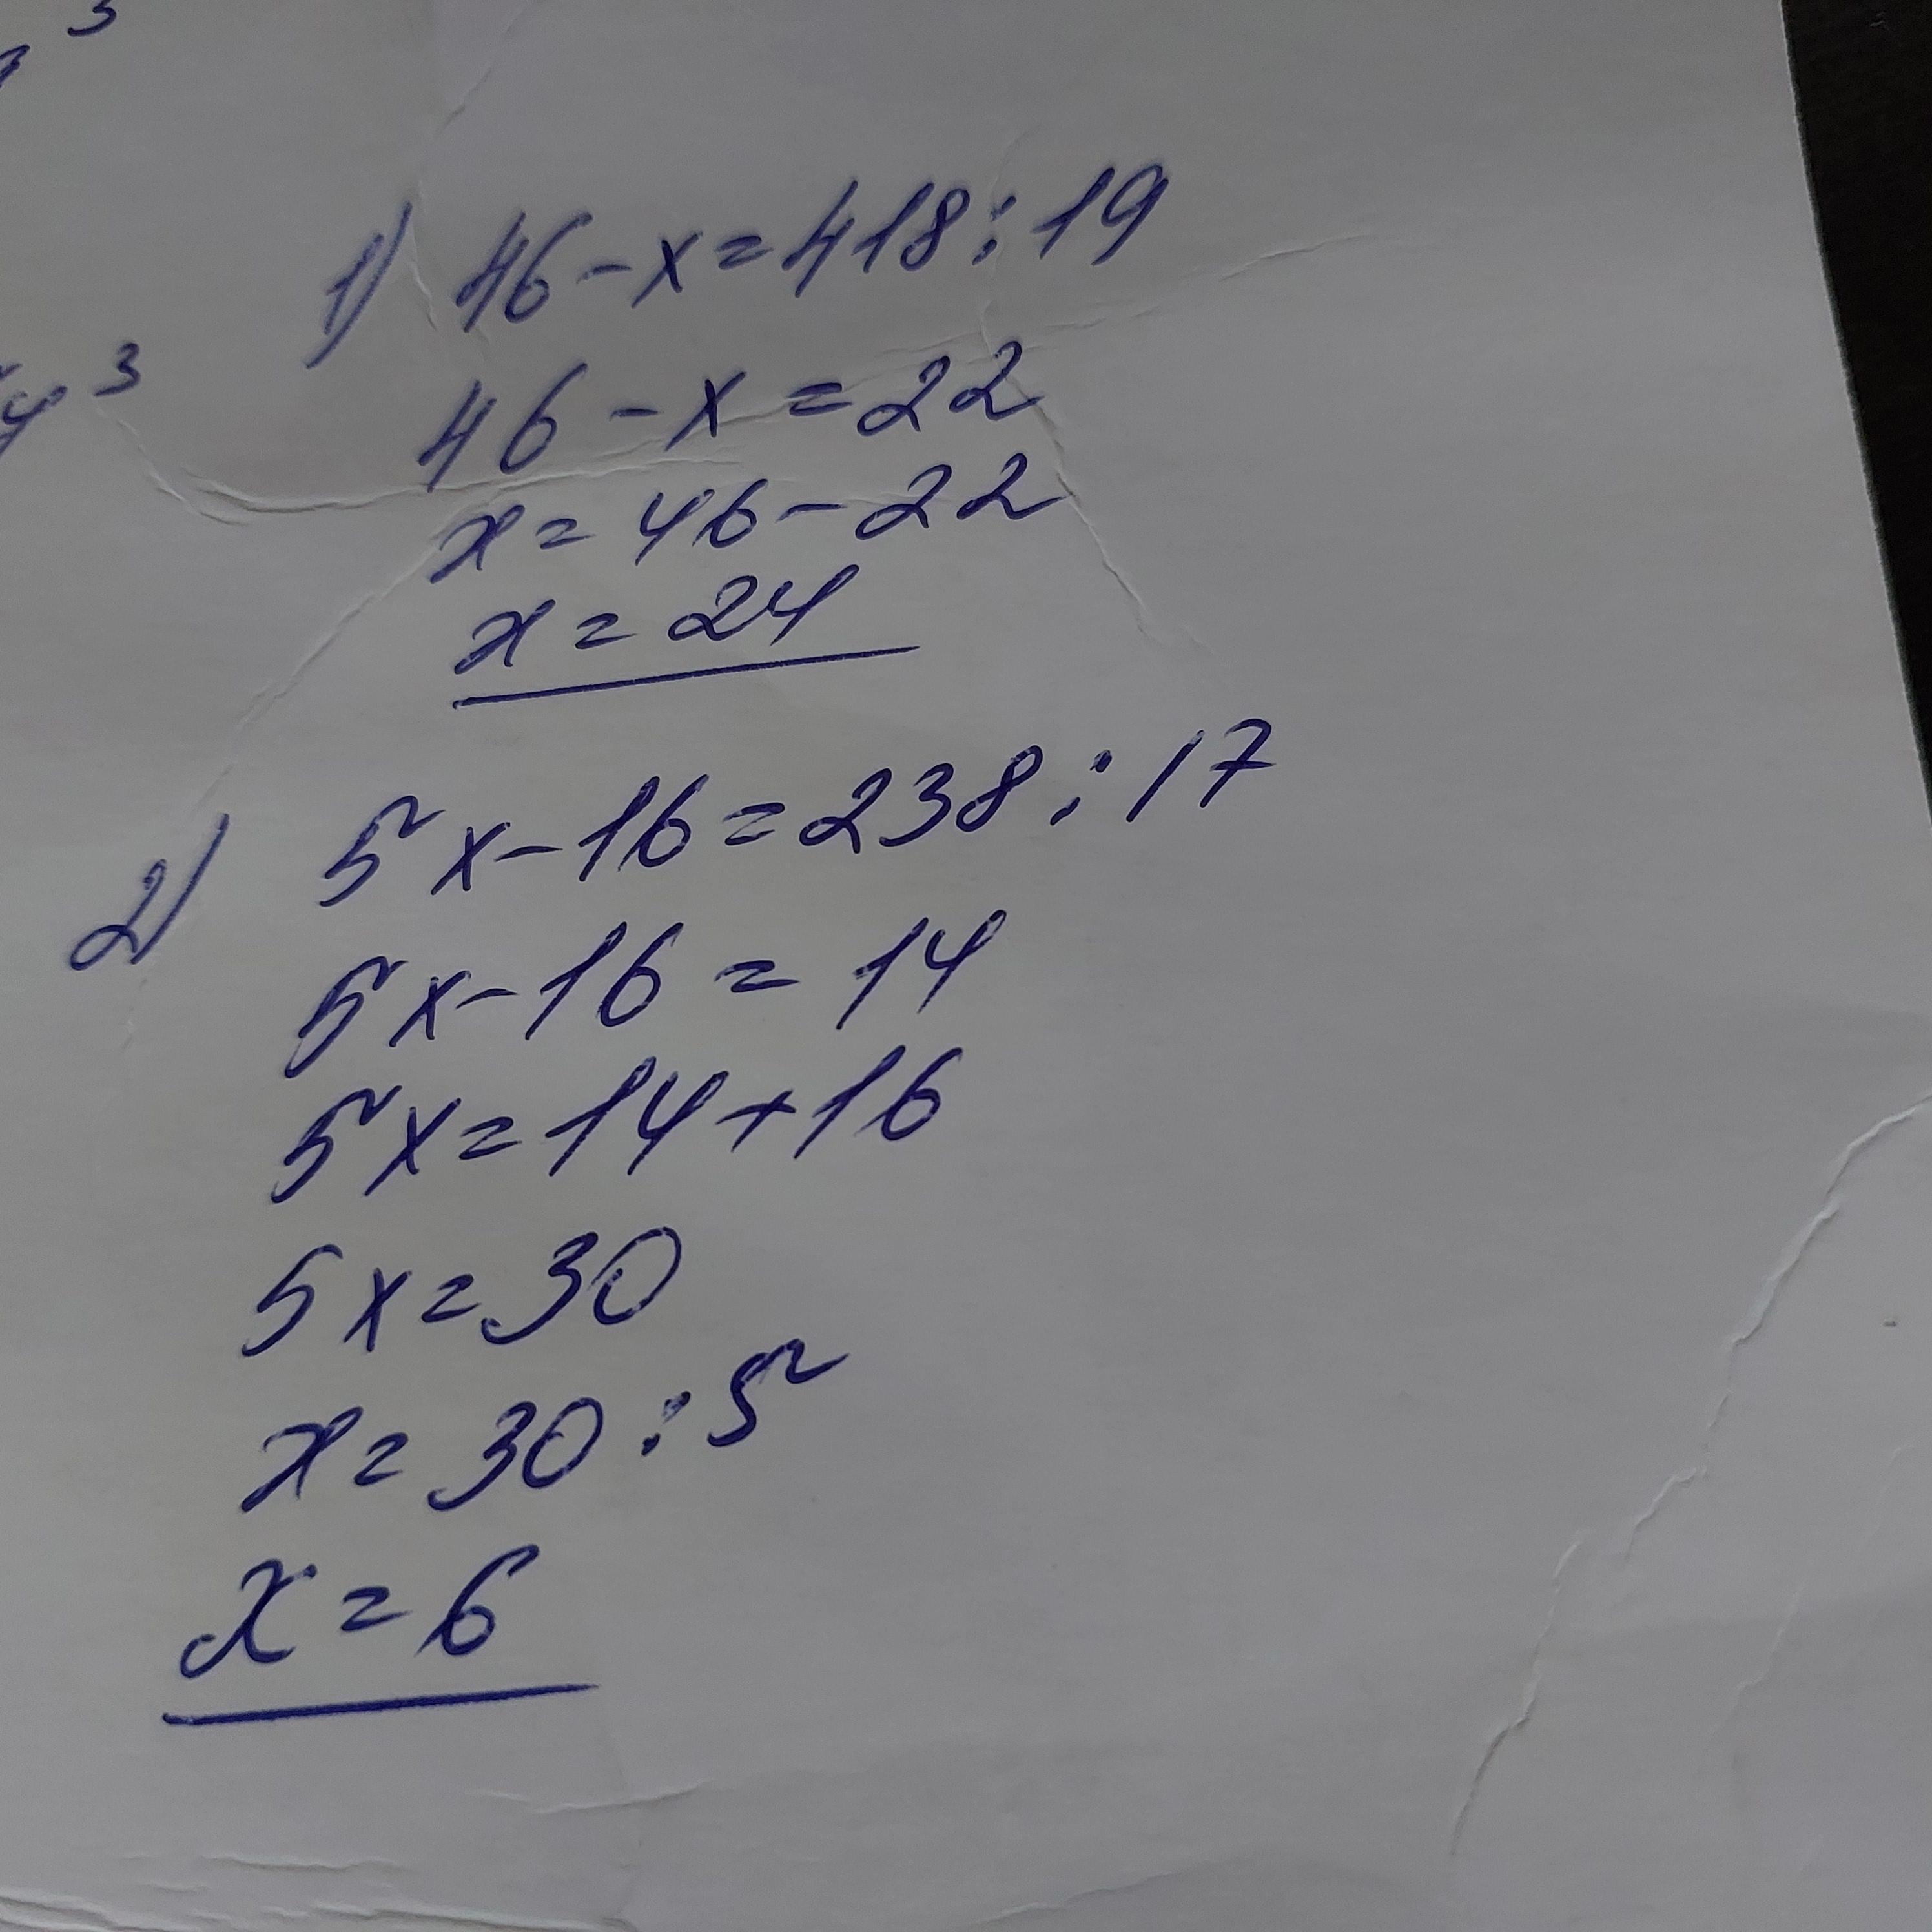 3
y³
1) 46-x=418:19
46-x=22
x=46-22
x=24
2) 5x-16=238:17
5x-16=14
5x=14+16
5x=30
x=30:5
x=6